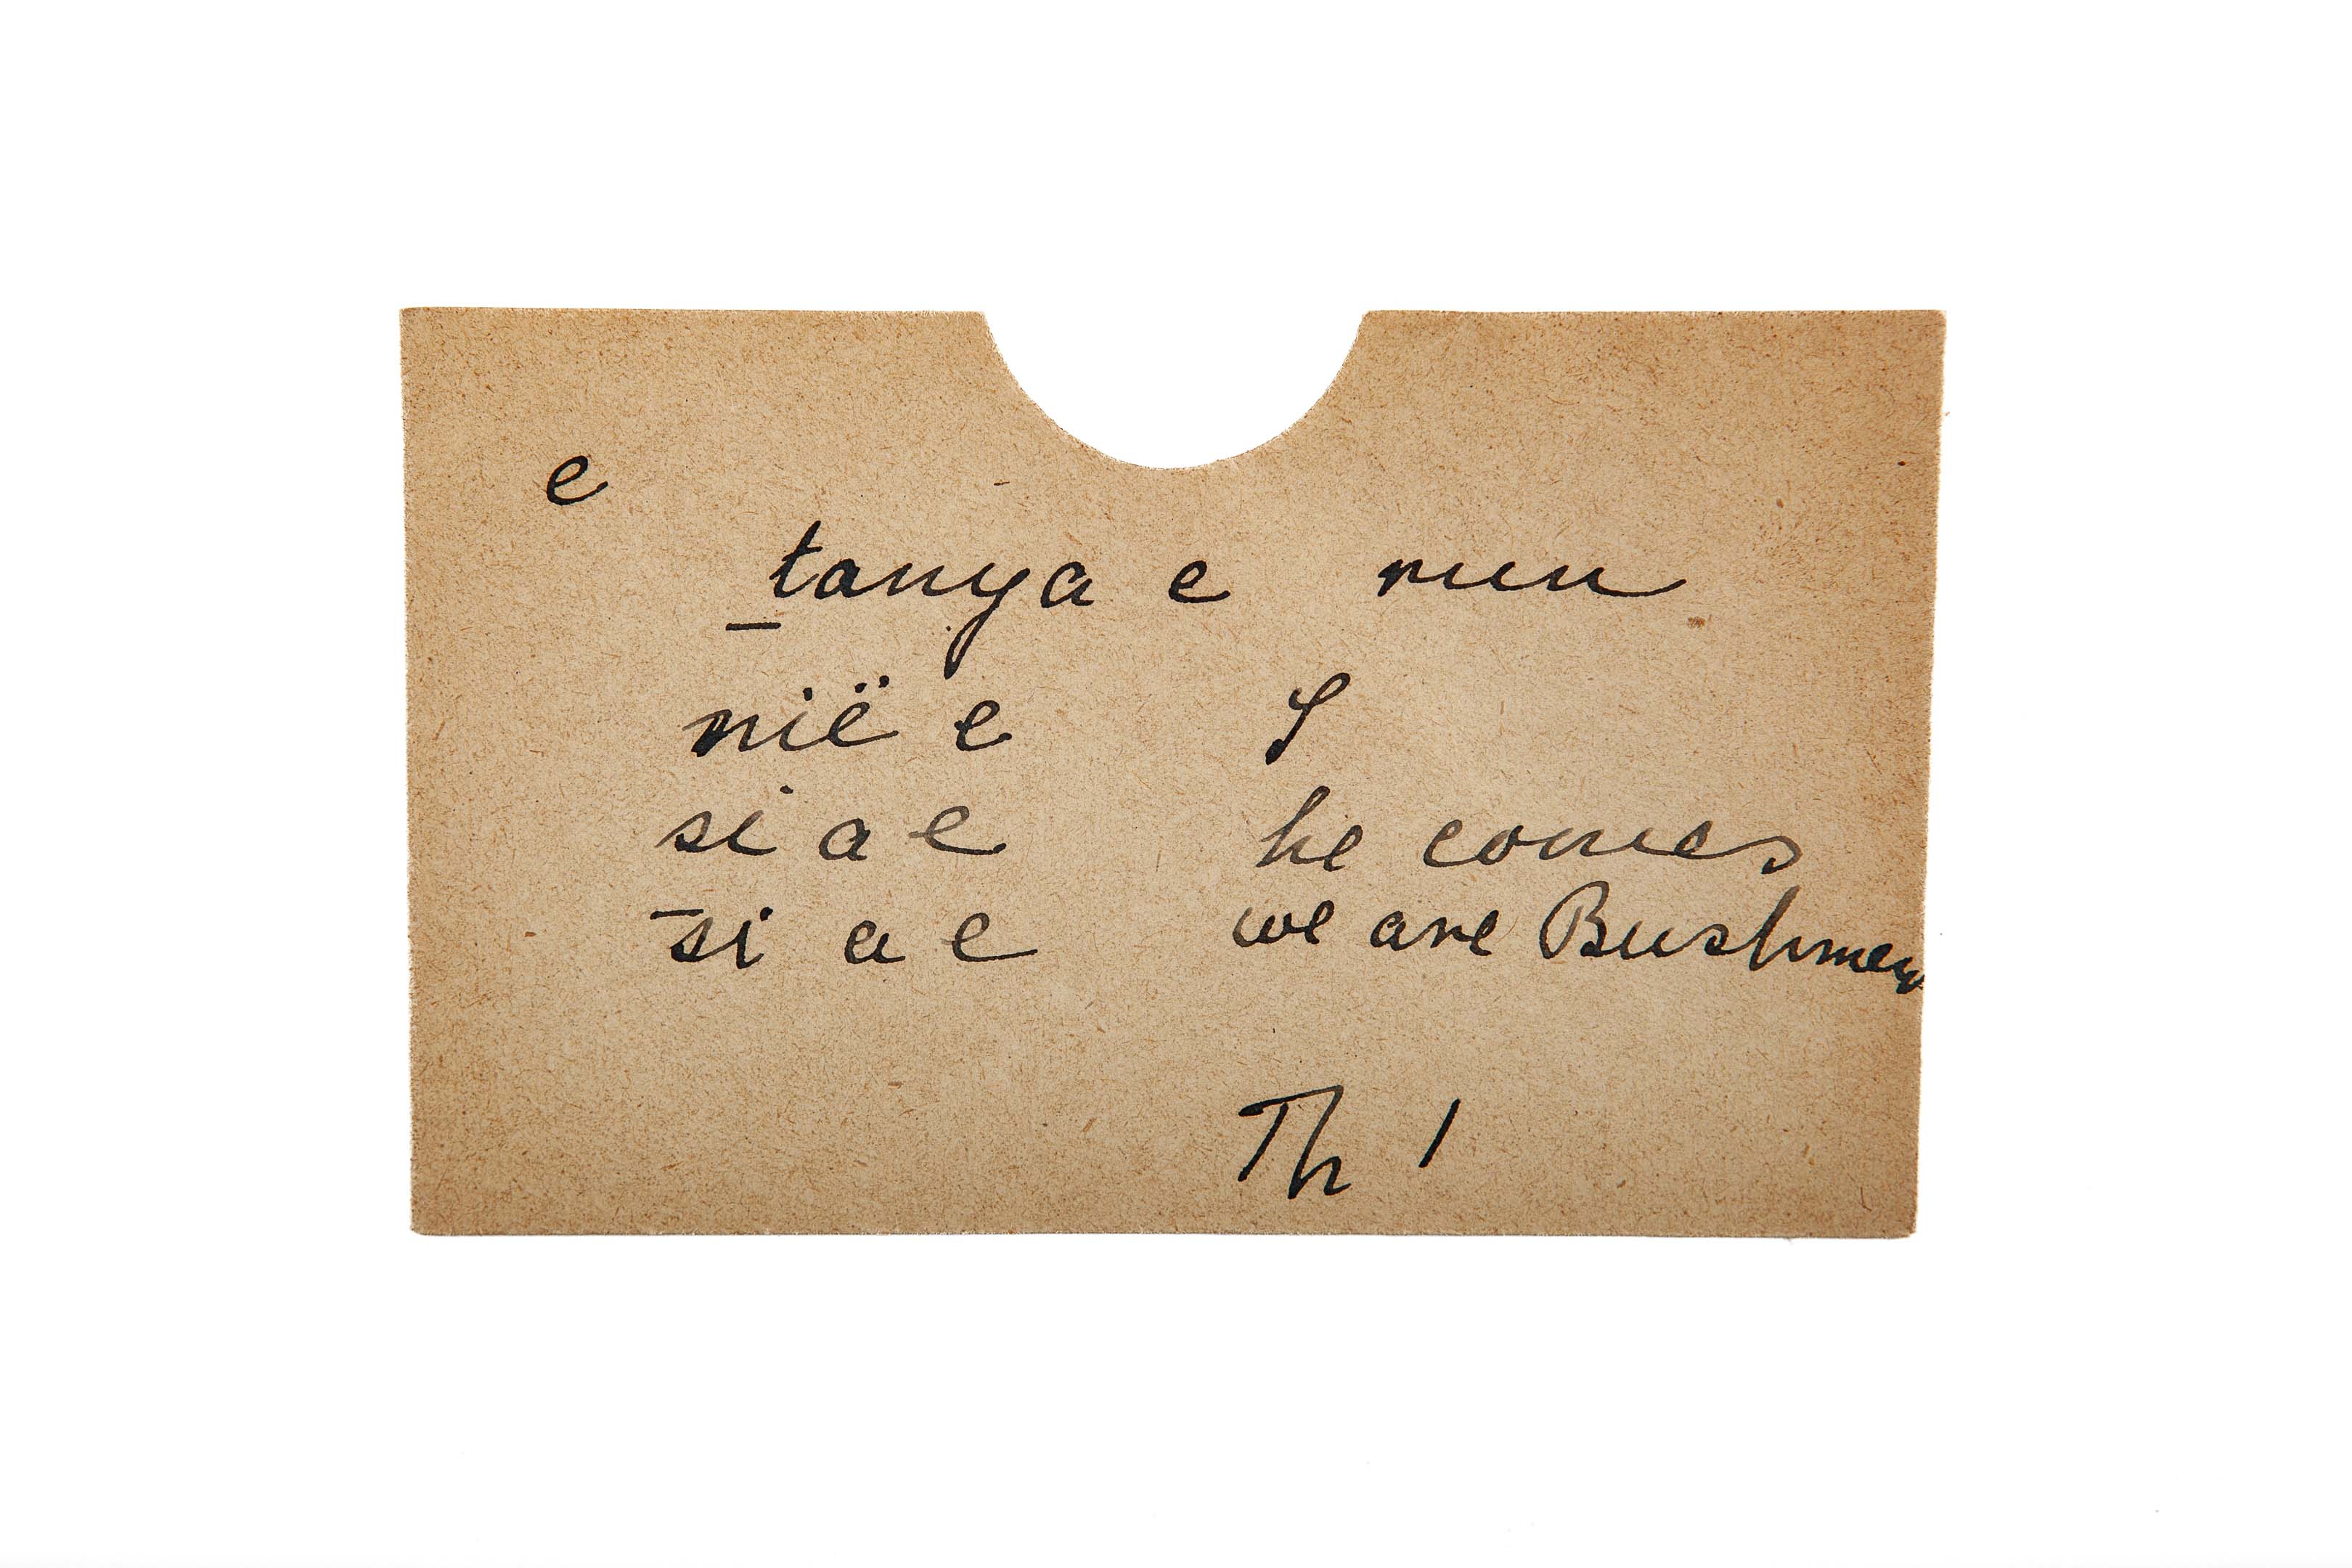 e
_tanya e run
nië e I
si a e he comes
‾si a e we are Bushmen
Th 1